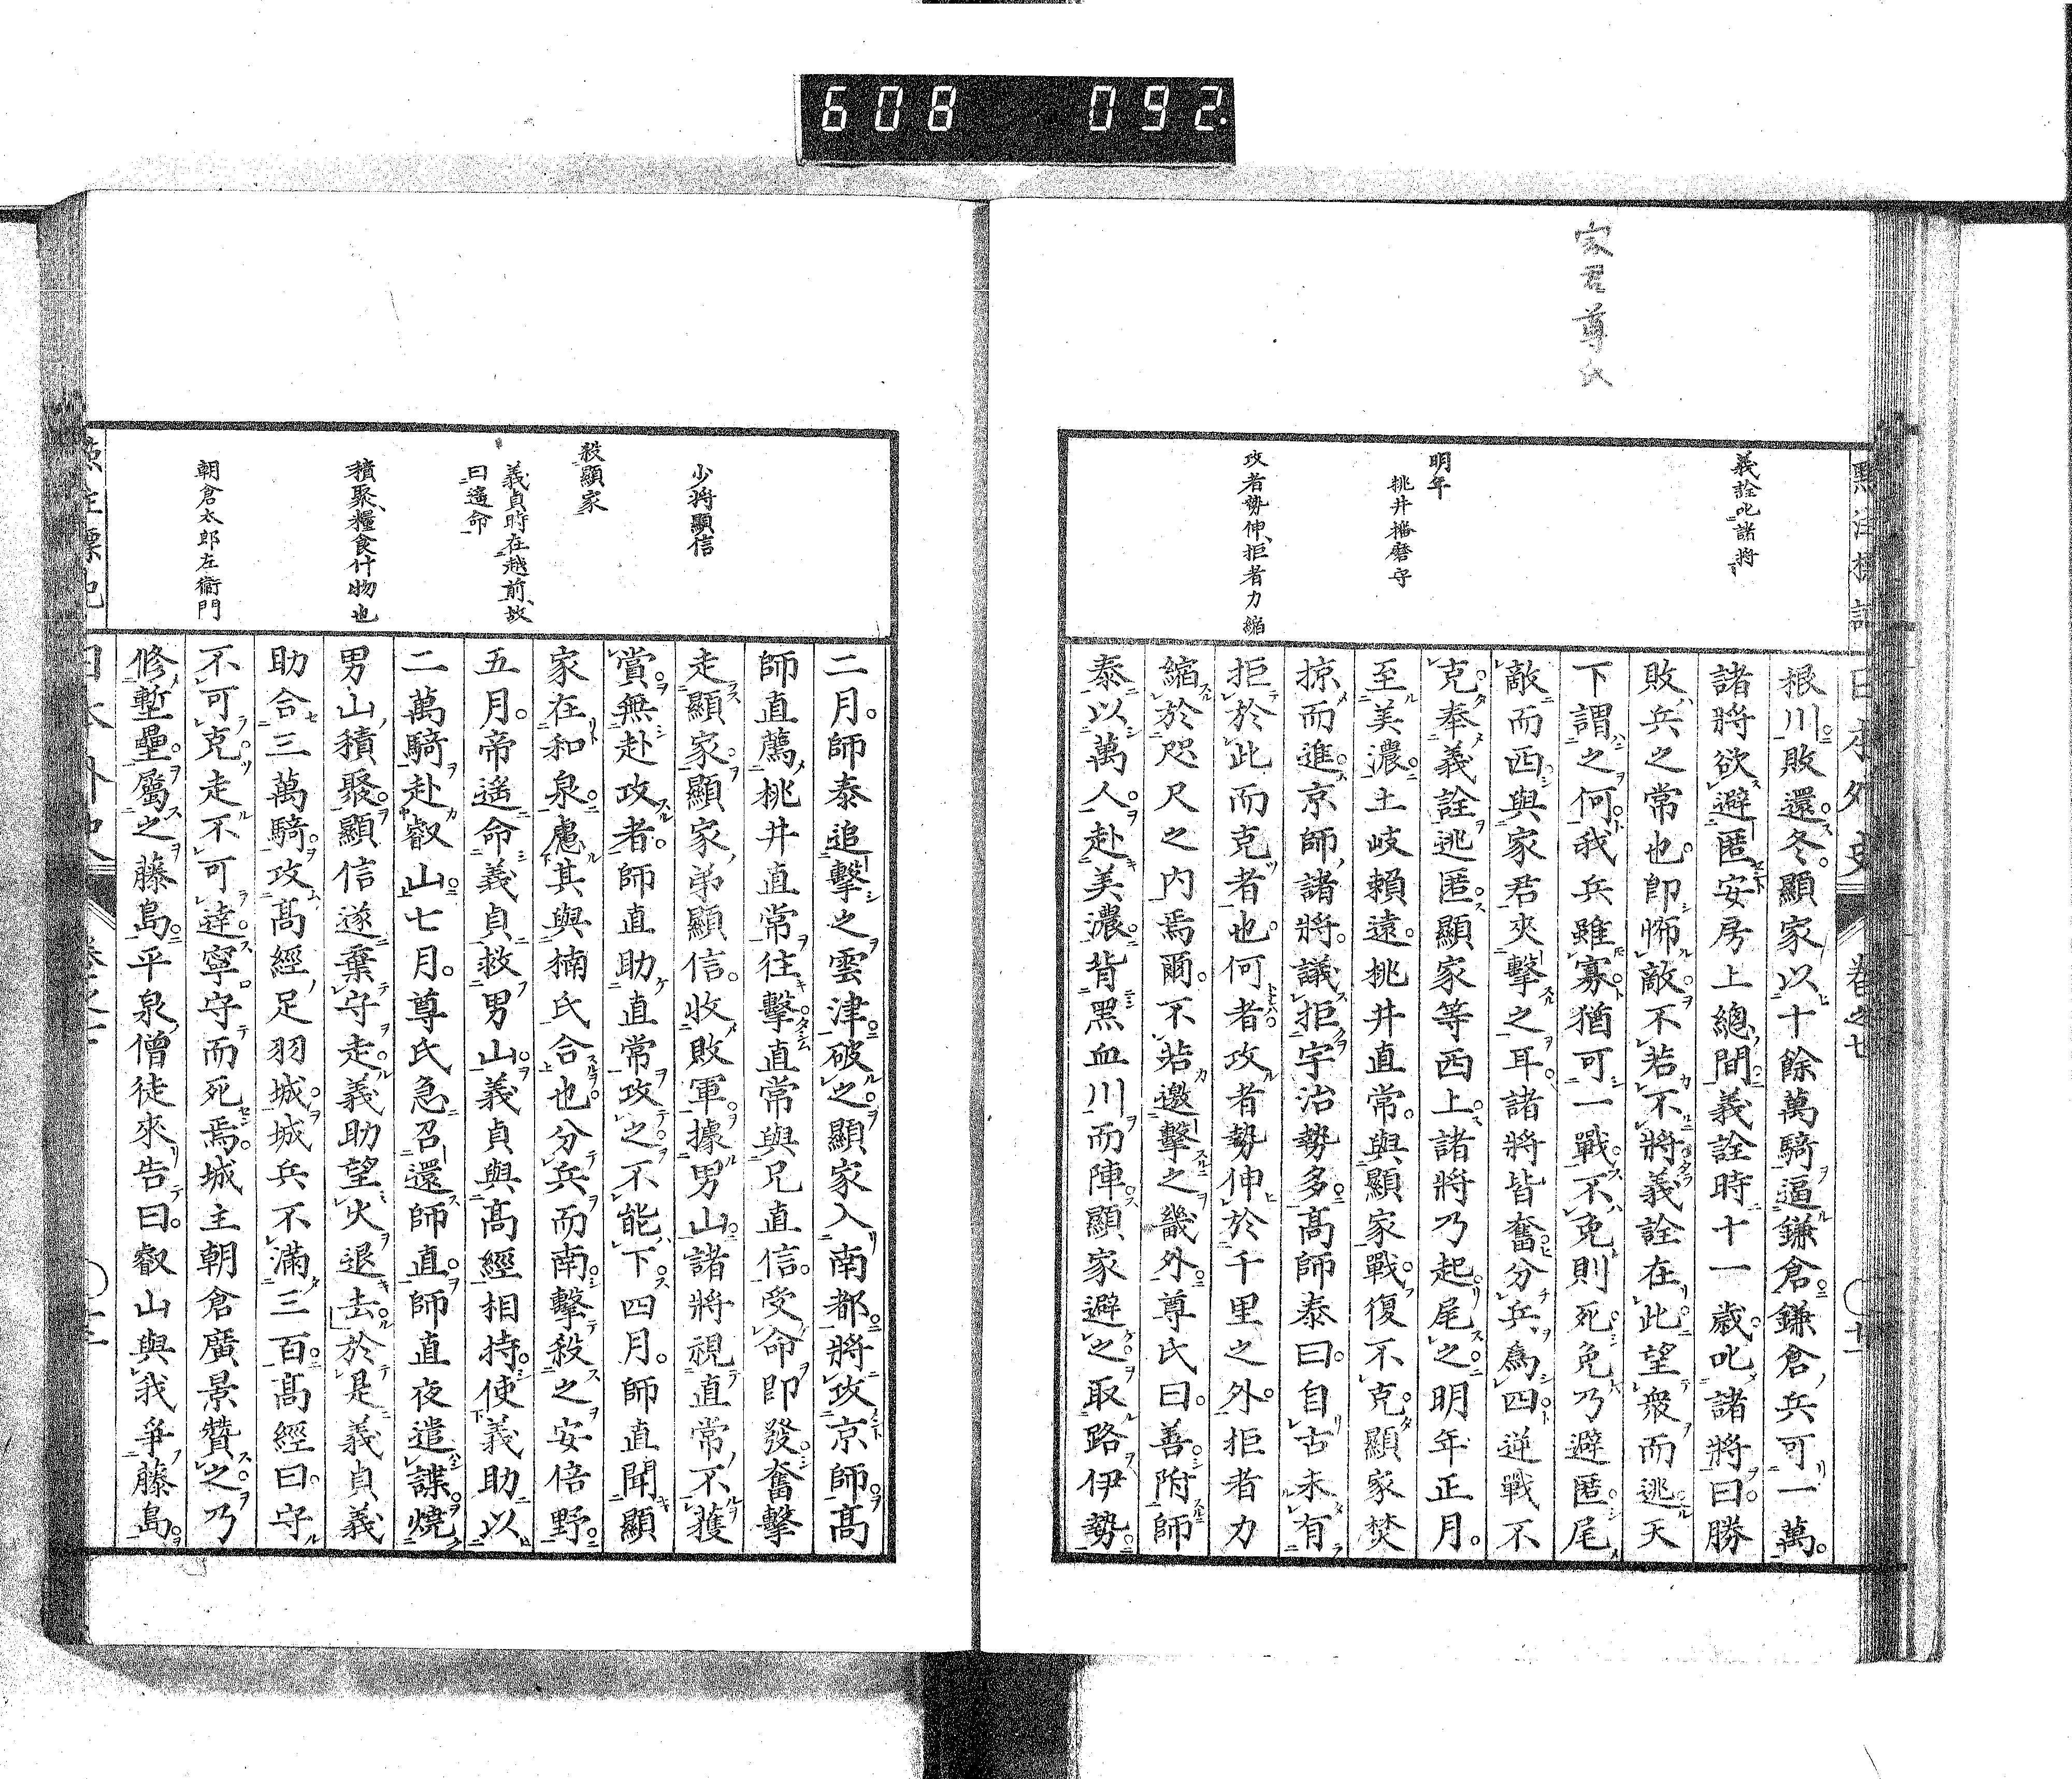 608 092
家君尊氏
義詮叱諸將
明年
桃井播磨守
攻者勢伸、拒者力縮
日本外史
卷之七
根川敗還。冬。顯家以十餘萬騎逼鎌倉。鎌倉,兵可一萬。
諸將欲避匿安房上總,間。義詮時十一歲。叱諸將曰。勝
敗,兵之常也。卽怖敵。不若不將。義詮在此。望衆而逃。天
下謂之何。我兵雖寡。猶可一戰。不免則死。免乃避匿。尾
敵而西。與家君夾擊之耳。諸將皆奮。分兵爲四。逆戰不
克。奉義詮逃匿。顯家等西上。諸將乃起。尾之。明年正月。
至美濃。土岐賴遠。桃井直常。與顯家戰。復不克。顯家焚
掠而進。京師,諸將。議拒宇治勢多。高師泰曰。自古未有
拒於此而克者也。何者攻者勢伸於千里之外。拒者力
縮於咫尺之內焉爾。不若邀擊之畿外。尊氏曰。善。附師
泰以萬人。赴美濃。背黑血川而陣。顯家避之。取路伊勢。
少將顯信
殺顯家
義貞時在越前、故
曰遙命
積聚、糧食什物也
朝倉太郎左衞門
二月。師泰追擊之雲津。破之。顯家入南都。將攻京師。高
師直薦桃井直常往擊。直常與兄直信。受命卽發。奮擊
走顯家。顯家,弟顯信。收敗軍。據男山。諸將視直常,不獲
賞。無赴攻者。師直助直常攻之。不能下。四月。師直聞顯
家在和泉。慮其與楠氏合也。分兵而南。擊殺之安倍野。
五月。帝遙命義貞救男山。義貞與高經相持。使義助以
二萬騎赴叡山。七月。尊氏急召還師直。師直夜遣諜。燒
男山,積聚。顯信遂棄守走。義助望火退去。於是義貞義
助合三萬騎。攻高經,足羽城。城兵不滿三百。高經曰。守
不可克。走不可達。寧守而死焉。城主朝倉廣景贊之。乃
修塹壘。屬之藤島。平泉,僧徒來告曰。叡山與我爭藤島。